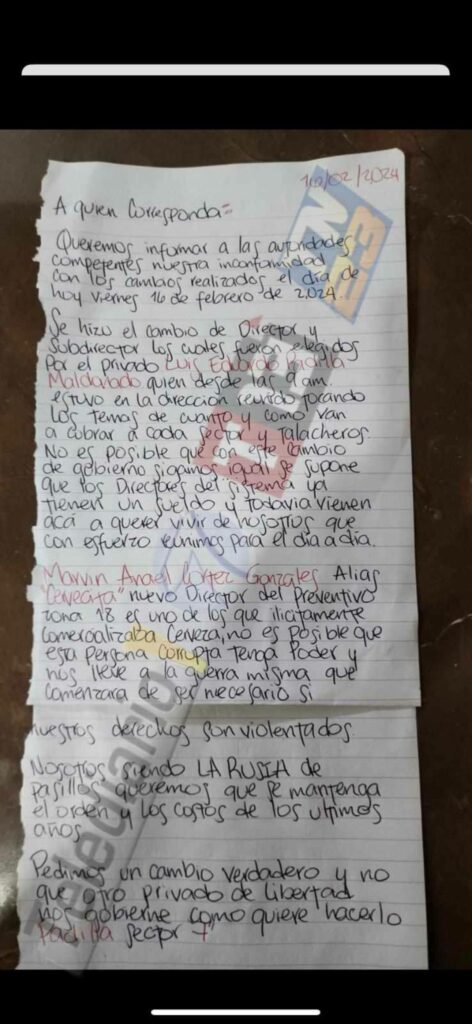 16/02/2024
A quien Corresponda=
Queremos informar a las autoridades
competentes nuestra inconformidad
con los cambios realizados el día de
hoy viernes 16 de febrero de 2024.
Se hizo el cambio de Director y
Subdirector los cuales fueron elegidos
Por el privado Luis Eduardo Padilla
Maldonado quien desde las 9 am.
estuvo en la dirección reunido tocando
los temas de cuanto y como van
a cobrar a cada sector y Talacheros.
No es posible que con este cambio
de gobierno sigamos igual se supone
que los Directores del sistema ya
tienen un sueldo y todavia vienen
acá a querer vivir de nosotros que
con esfuerzo reunimos para el dia a dia.
Marvin Anael Cortez Gonzales Alias
"Cervecita" nuevo Director del Preventivo
zona 18 es uno de los que ilicitamente
Comercializaba Cerveza, no es posible que
esta persona corrupta tenga Poder y
nos lleve a la guerra misma que
comenzara de ser necesario si
nuestros derechos son violentados.
Nosotros siendo LA RUSIA de
pasillos queremos que se mantenga
el orden y los costos de los ultimos
años
Pedimos un cambio verdadero y no
que otro privado de libertad
nos gobierne como quiere hacerlo
Padilla sector 7
Telediario
TN23